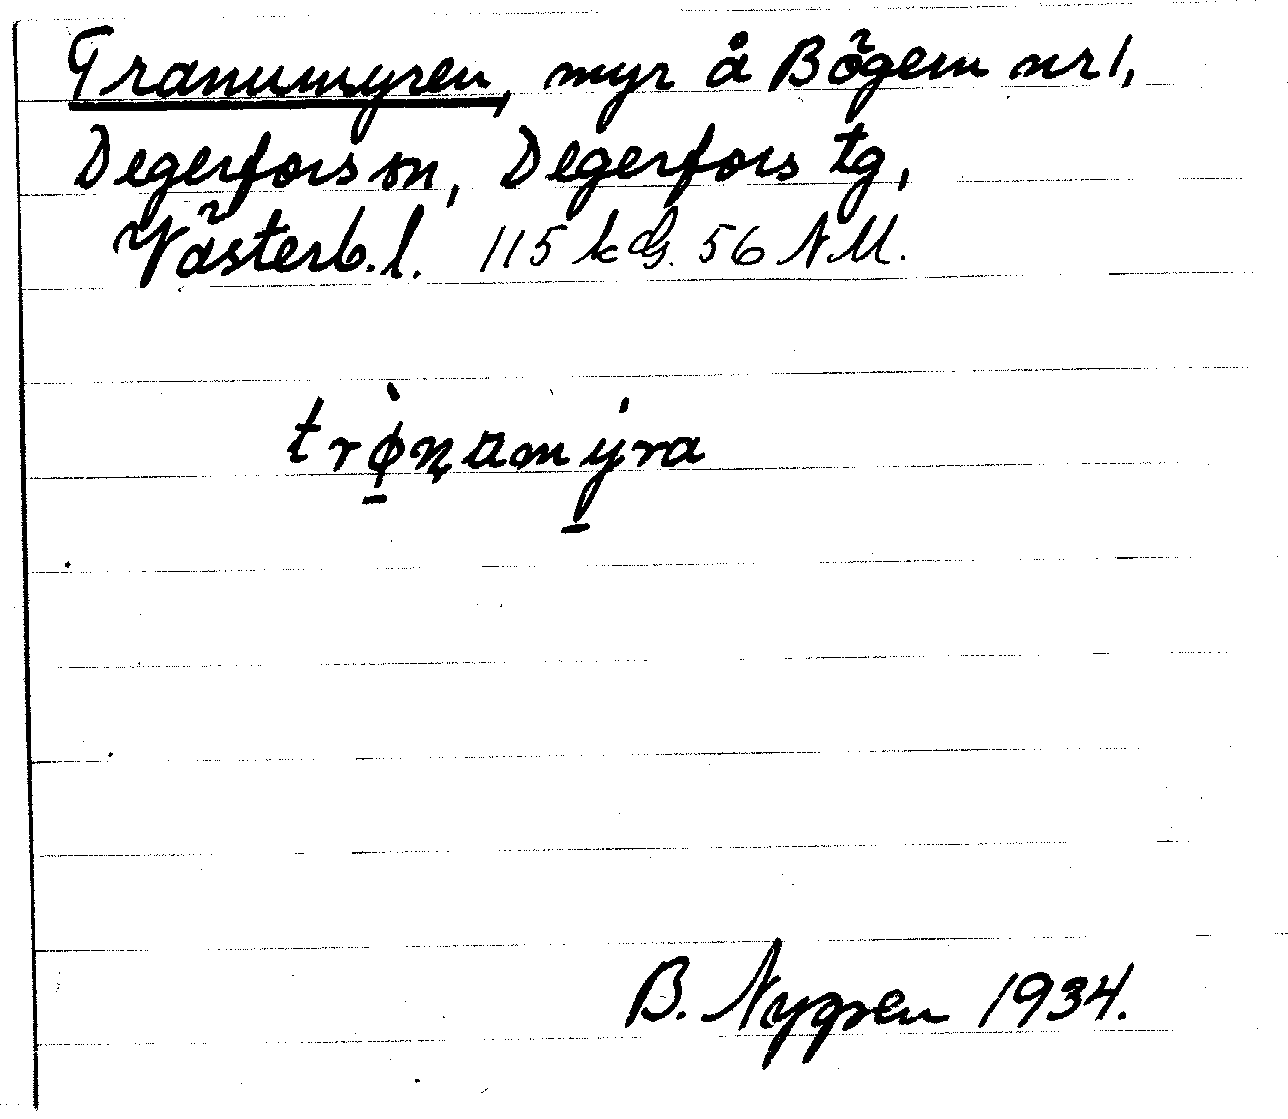 Tranumyren, myr å Bögem nr 1,
Degerfors sn, Degerfors tg,
Västerb. l. 115 kds. 56 NM.
trø̀n̨amýra
B. Nygren 1934.